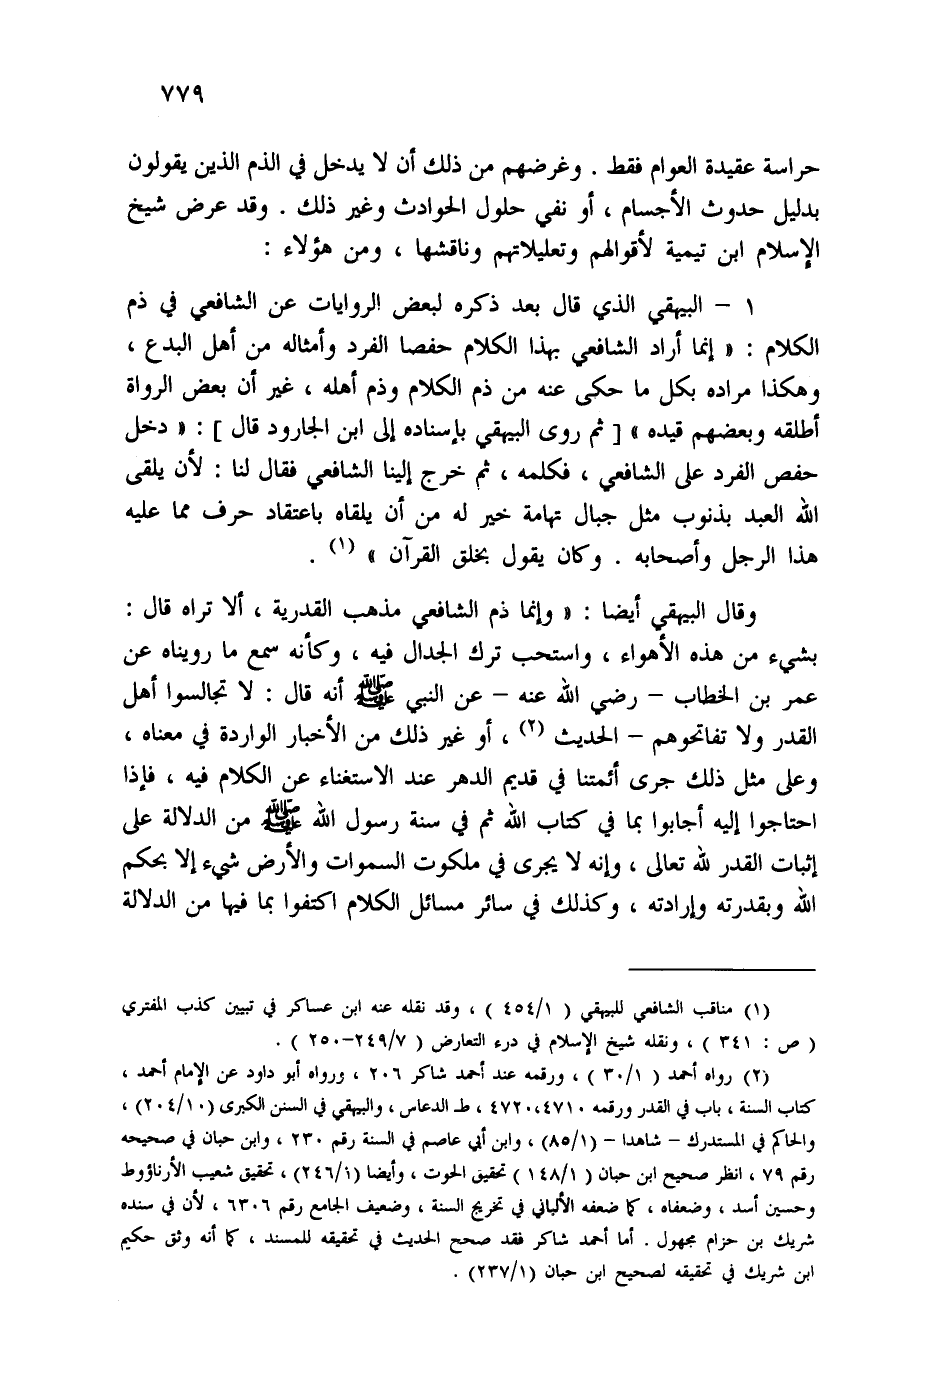 ٧٧٩
حراسة عقيدة العوام فقط . وغرضهم من ذلك أن لا يدخل في الذم الذين يقولون
بدليل حدوث الأجسام ، أو نفي حلول الحوادث وغير ذلك . وقد عرض شيخ
الإسلام ابن تيمية لأقوالهم وتعليلاتهم وناقشها ، ومن هؤلاء :
١ – البيهقي الذي قال بعد ذكره لبعض الروايات عن الشافعي في ذم
الكلام : « إنما أراد الشافعي بهذا الكلام حفصا الفرد وأمثاله من أهل البدع ،
وهكذا مراده بكل ما حكى عنه من ذم الكلام وذم أهله ، غير أن بعض الرواة
أطلقه وبعضهم قيده » [ ثم روى البيهقي بإسناده إلى ابن الجارود قال ] : « دخل
حفص الفرد على الشافعي ، فكلمه ، ثم خرج إلينا الشافعي فقال لنا : لأن يلقى
الله العبد بذنوب مثل جبال تهامة خير له من أن يلقاه باعتقاد حرف مما عليه
هذا الرجل وأصحابه . وكان يقول بخلق القرآن » (١) .
وقال البيهقي أيضا : « وإنما ذم الشافعي مذهب القدرية ، ألا تراه قال :
بشيء من هذه الأهواء ، واستحب ترك الجدال فيه ، وكأنه سمع ما رويناه عن
عمر بن الخطاب – رضي الله عنه – عن النبي ﷺ أنه قال : لا تجالسوا أهل
القدر ولا تفاتحوهم – الحديث (٢) ، أو غير ذلك من الأخبار الواردة في معناه ،
وعلى مثل ذلك جرى أئمتنا في قديم الدهر عند الاستغناء عن الكلام فيه ، فإذا
احتاجوا إليه أجابوا بما في كتاب الله ثم في سنة رسول الله ﷺ من الدلالة على
إثبات القدر لله تعالى ، وإنه لا يجرى في ملكوت السموات والأرض شيء إلا بحكم
الله وبقدرته وإرادته ، وكذلك في سائر مسائل الكلام اكتفوا بما فيها من الدلالة
(١) مناقب الشافعي للبيهقي ( ٤٥٤/١ ) ، وقد نقله عنه ابن عساكر في تبيين كذب المفتري
( ص : ٣٤١ ) ، ونقله شيخ الإسلام في درء التعارض ( ٢٤٩/٧–٢٥٠ ) .
(٢) رواه أحمد ( ٣٠/١ ) ، ورقمه عند أحمد شاكر ٢٠٦ ، ورواه أبو داود عن الإمام أحمد ،
كتاب السنة ، باب في القدر ورقمه ٤٧١٠،٤٧٢٠ ، ط الدعاس ، والبيهقي في السنن الكبرى (٢٠٤/١٠) ،
والحاكم في المستدرك – شاهدا – (٨٥/١) ، وابن أبي عاصم في السنة رقم ٢٣٠ ، وابن حبان في صحيحه
رقم ٧٩ ، انظر صحيح ابن حبان ( ١٤٨/١ ) تحقيق الحوت ، وأيضا (٢٤٦/١) ، تحقيق شعيب الأرناؤوط
وحسين أسد ، وضعفاه ، كما ضعفه الألباني في تخريج السنة ، وضعيف الجامع رقم ٦٣٠٦ ، لأن في سنده
شريك بن حزام مجهول . أما أحمد شاكر فقد صحح الحديث في تحقيقه للمسند ، كما أنه وثق حكيم
ابن شريك في تحقيقه لصحيح ابن حبان (٢٣٧/١) .